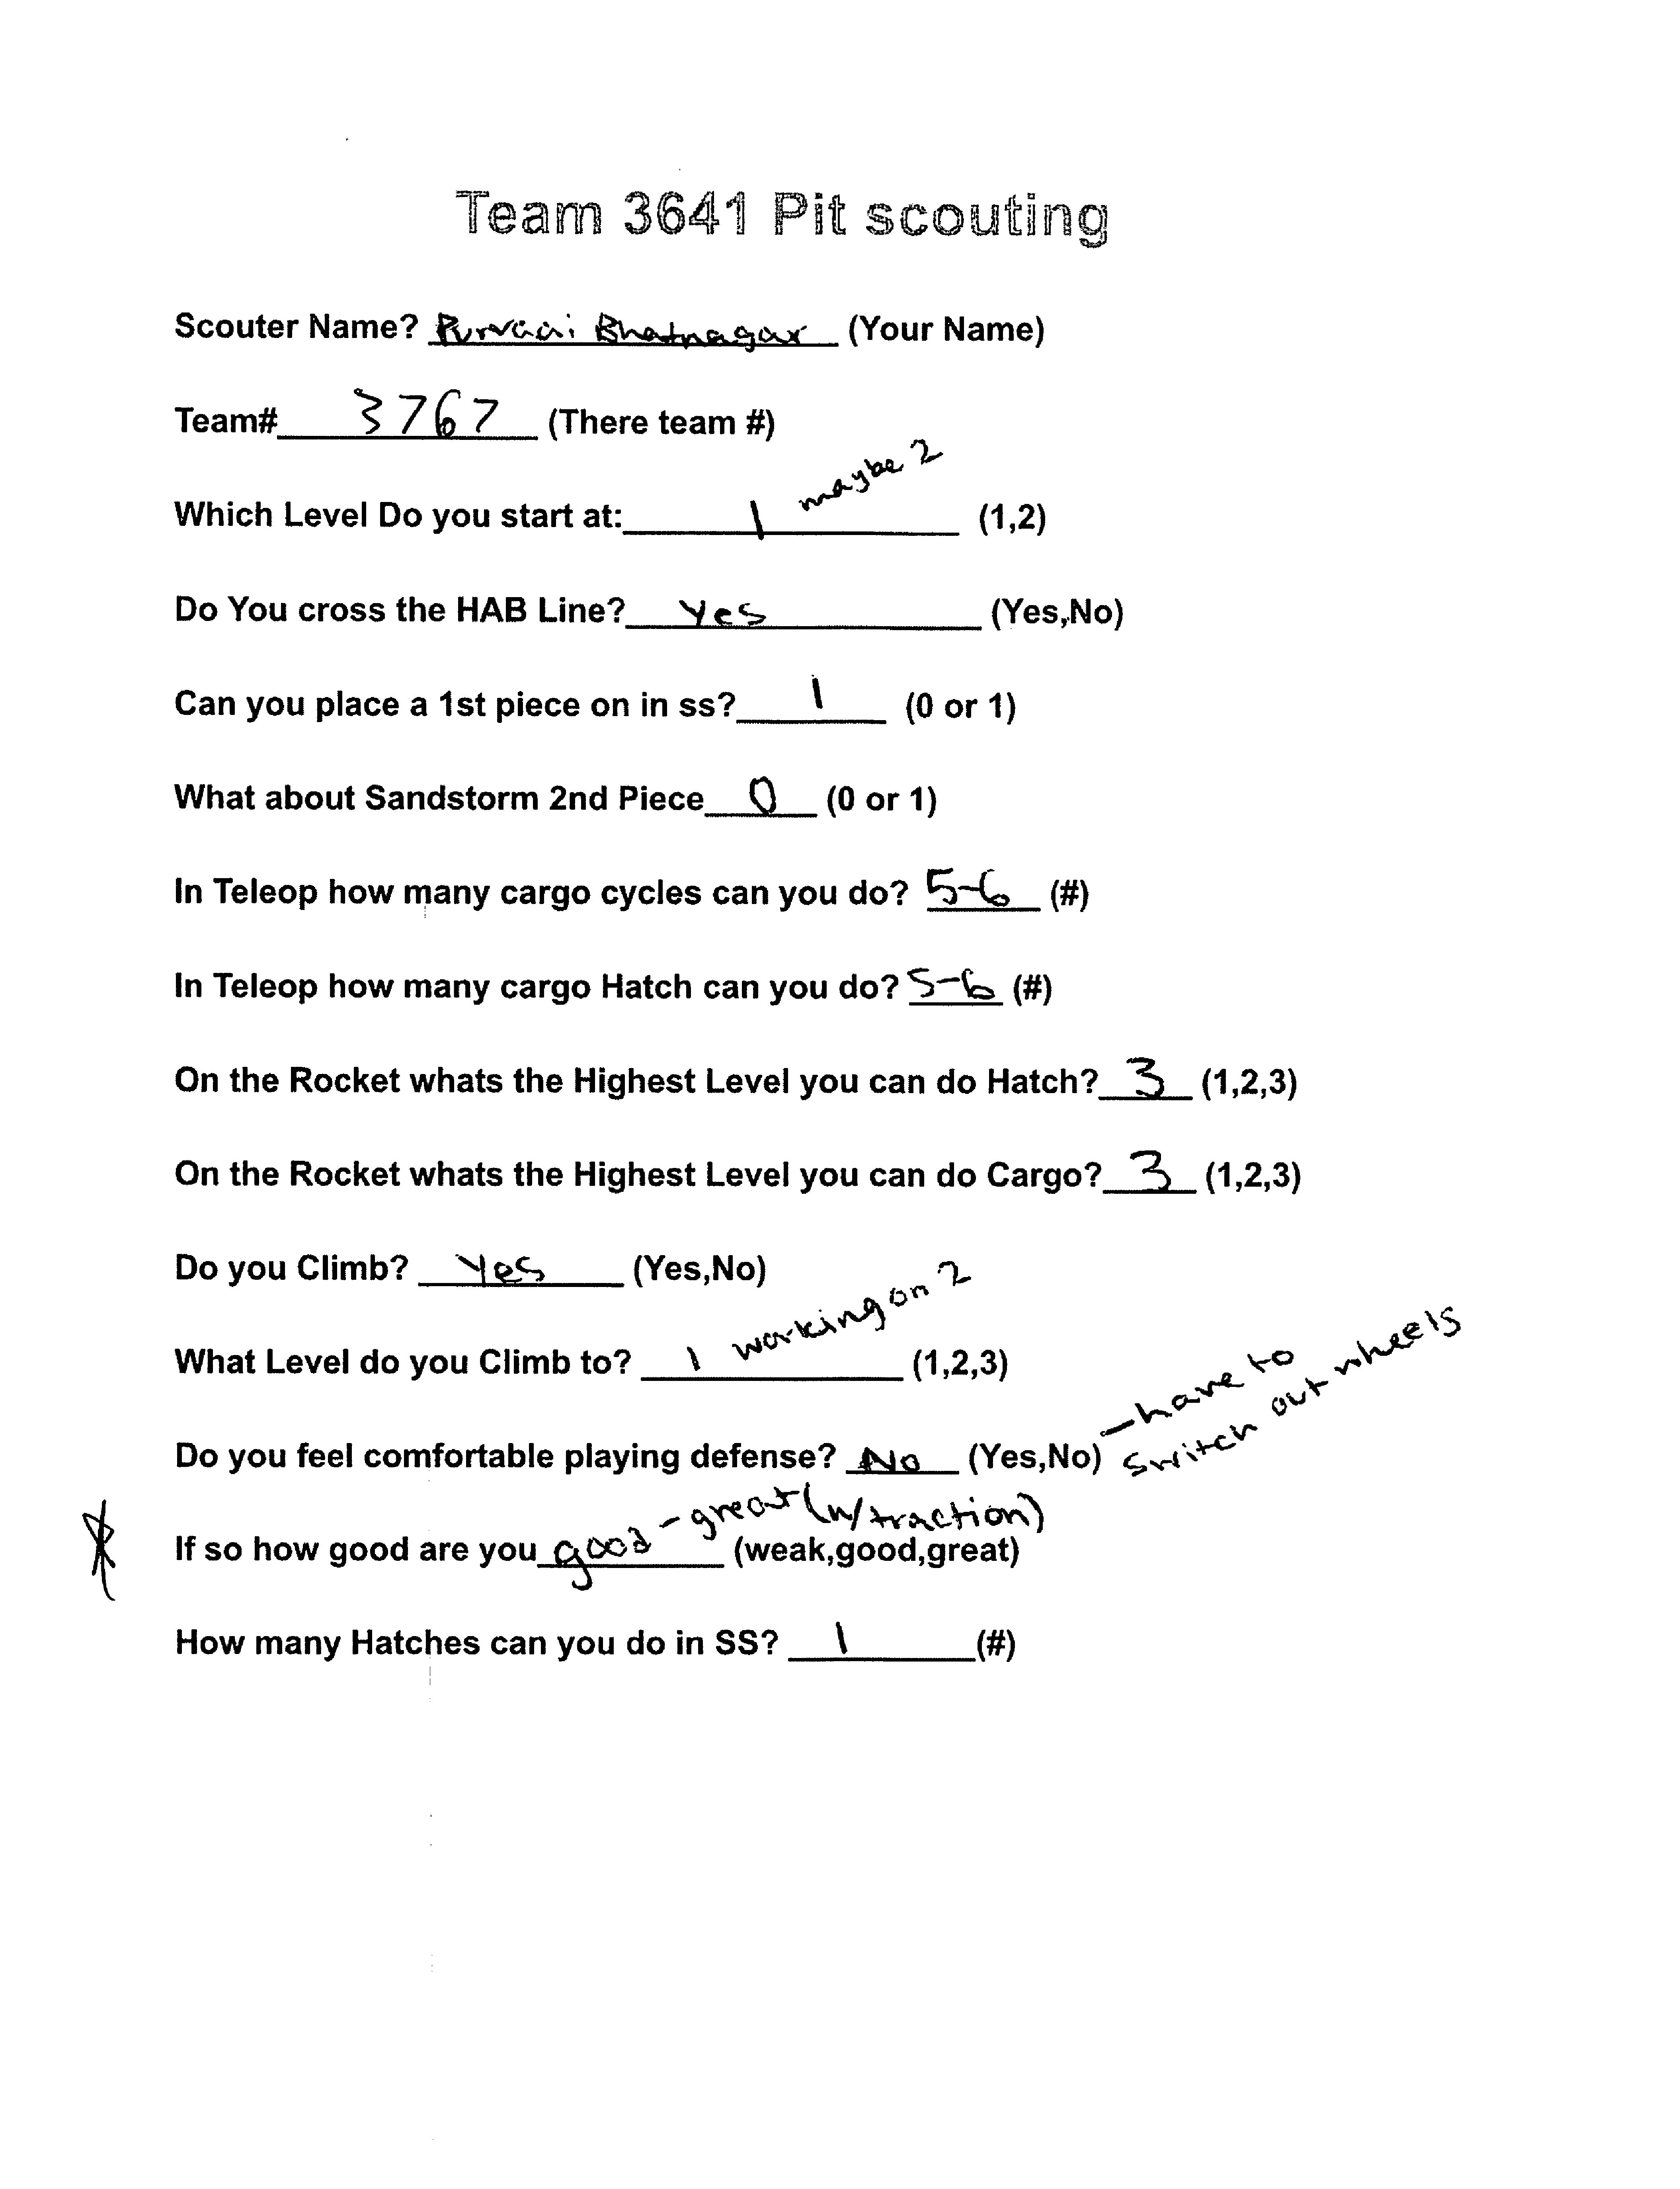 Team 3641 Pit scouting
Scouter Name? Bhatnagar (Your Name)
Team# 3767 (There team #)
Which Level Do you start at: 1 maybe 2 (1,2)
Do You cross the HAB Line? Yes (Yes,No)
Can you place a 1st piece on in ss? 1 (0 or 1)
What about Sandstorm 2nd Piece 0 (0 or 1)
In Teleop how many cargo cycles can you do? 5-6 (#)
In Teleop how many cargo Hatch can you do? 5-6 (#)
On the Rocket whats the Highest Level you can do Hatch? 3 (1,2,3)
On the Rocket whats the Highest Level you can do Cargo? 3 (1,2,3)
Do you Climb? Yes (Yes,No)
What Level do you Climb to? 1 working on 2 (1,2,3)
Do you feel comfortable playing defense? No (Yes,No) - have to
switch out wheels
If so how good are you good - great (w/ traction) (weak,good,great)
How many Hatches can you do in SS? 1 (#)